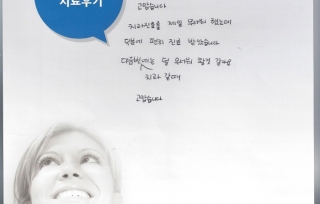 치료후기
고맙습니다
치과진료를 제일 무서워 했는데
덕분에 편히 진료 받았습니다
다음번에는 덜 무서워 할것 같아요
치과 갈때
고맙습니다